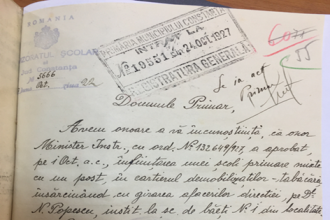 ROMANIA
PRIMARIA MUNICIPIULUI CONSTANTA
INTRAT LA
No 19551 24 OCT. 1927
REGISTRATURA GENERALA
No. 5666
Oct.
Se ia act
Domnule Primar,
Avem onoare a vă încunoștiința, că onor
Minister Instr., cu ord. Nr. 132649/927, a aprobat,
pe 1 Oct. a.c., înființarea unei școli primare mixte
cu un post, în cartierul demobilizaților - tăbăcărie
însărcinând cu girarea afacerilor direcției pe D.
N. Popescu, instit. la șc. de băeți N. 1 din localitate